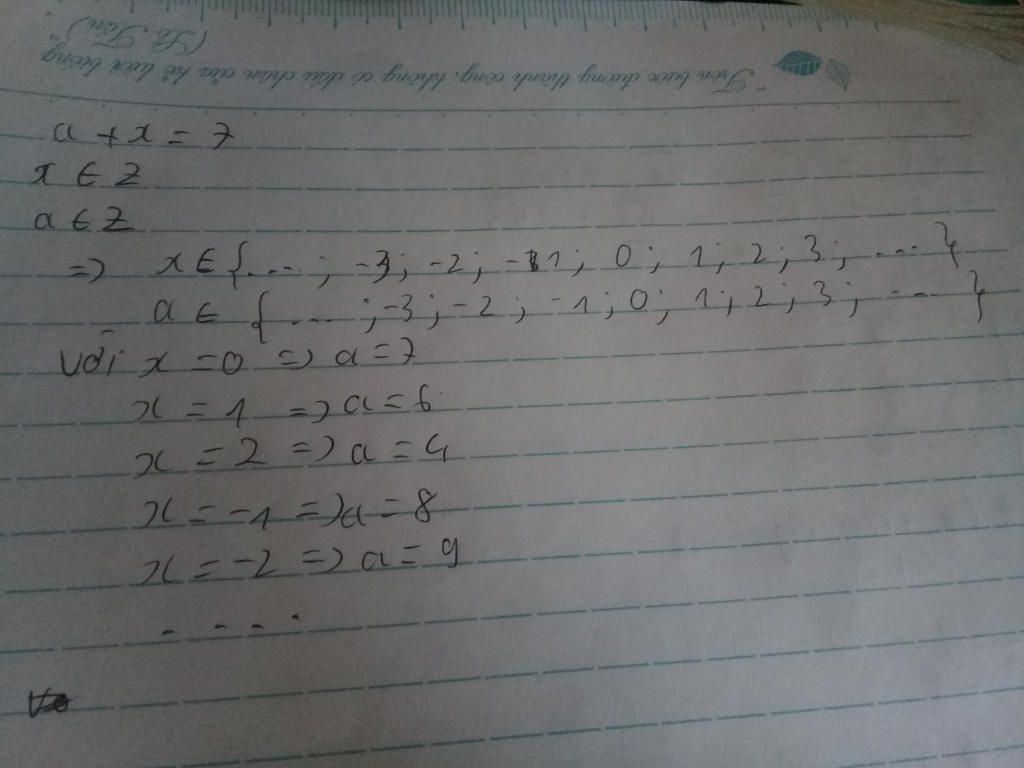 "Trên bước đường thành công, không có dấu chân của kẻ lười biếng"
(Lỗ Tấn)
a + x = 7
x ∈ Z
a ∈ Z
=> x ∈ {....; -3; -2; -1; 0; 1; 2; 3; .... }
a ∈ { ....; -3; -2; -1; 0; 1; 2; 3; .... }
Với x = 0 => a = 7
x = 1 => a = 6
x = 2 => a = 4
x = -1 => a = 8
x = -2 => a = 9
. . . .